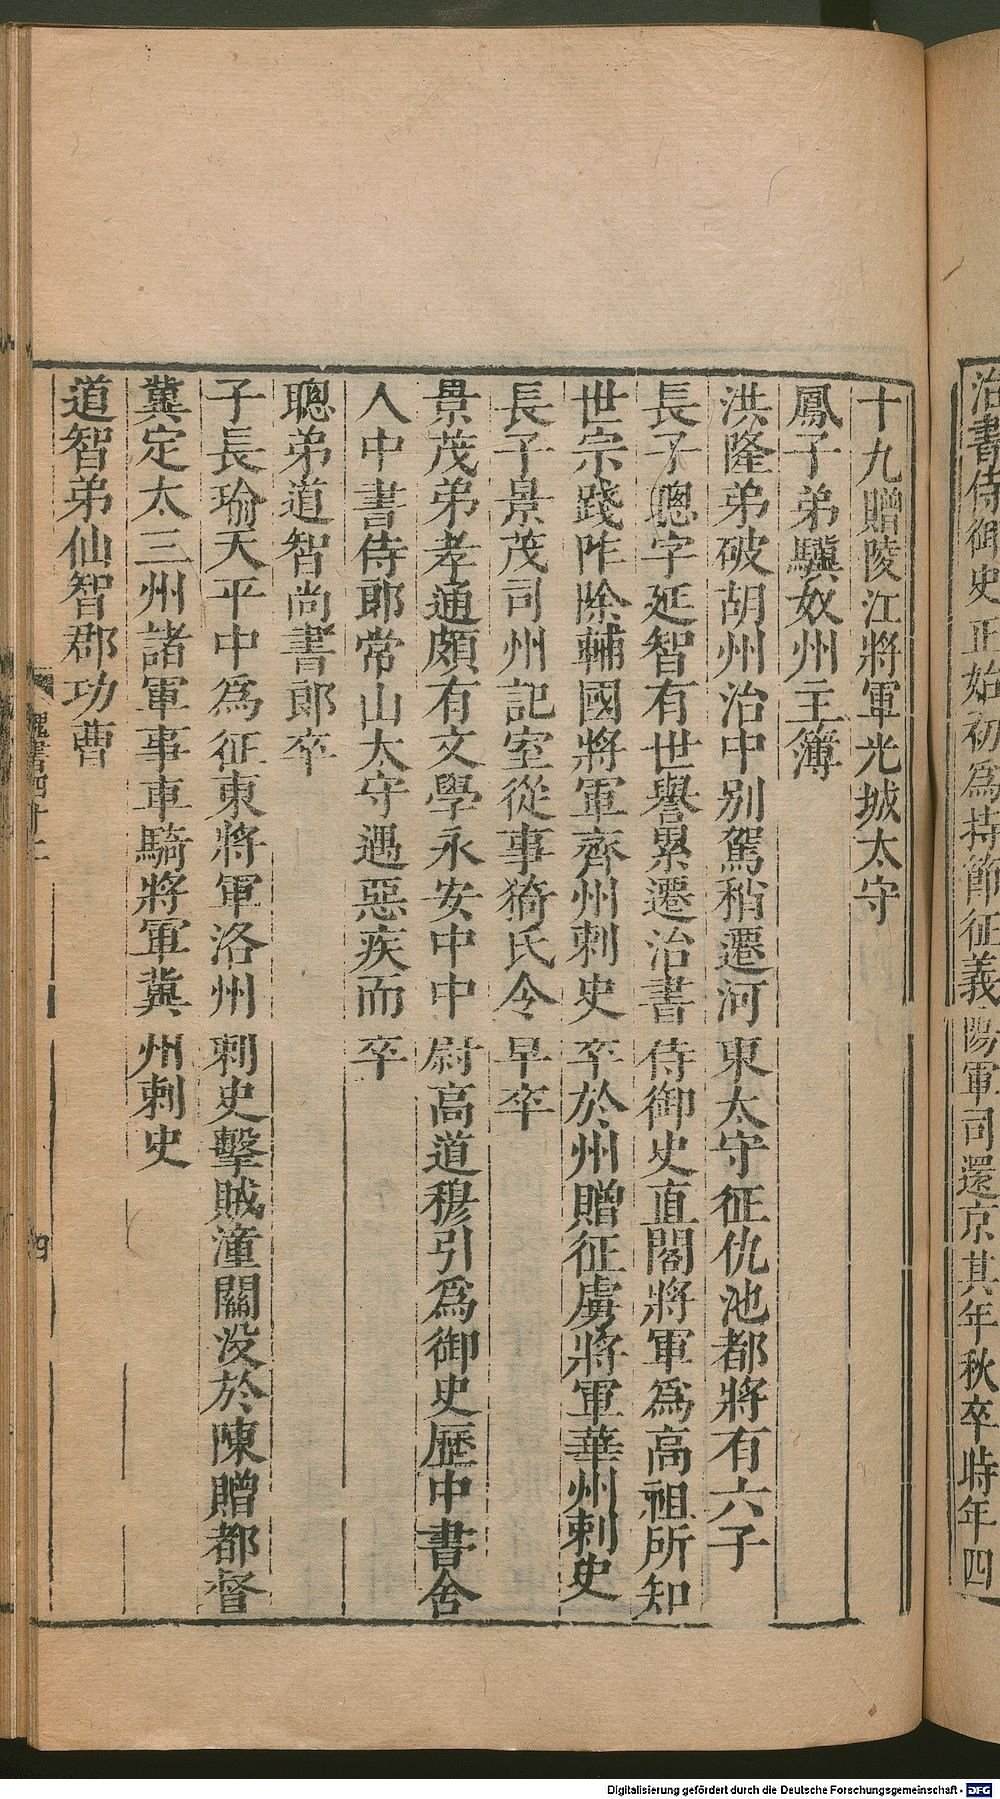 治書侍御史正始初為持節征義陽軍司還京其年秋卒時年四
十九贈陵江將軍光城太守
鳳子弟驥奴州主簿
洪隆弟破胡州治中別駕稍遷河東太守征仇池都將有六子
長子聰字延智有世譽累遷治書侍御史直閣將軍為高祖所知
世宗踐阼除輔國將軍齊州刺史卒於州贈征虜將軍華州刺史
長子景茂司州記室從事猗氏令早卒
景茂弟孝通頗有文學永安中中尉高道穆引為御史歷中書舍
人中書侍郎常山太守遇惡疾而卒
聰弟道智尚書郎卒
子長瑜天平中為征東將軍洛州刺史擊賊潼關沒於陳贈都督
冀定太三州諸軍事車騎將軍冀州刺史
道智弟仙智郡功曹
魏書四十二
四
Digitalisierung gefördert durch die Deutsche Forschungsgemeinschaft - DFG